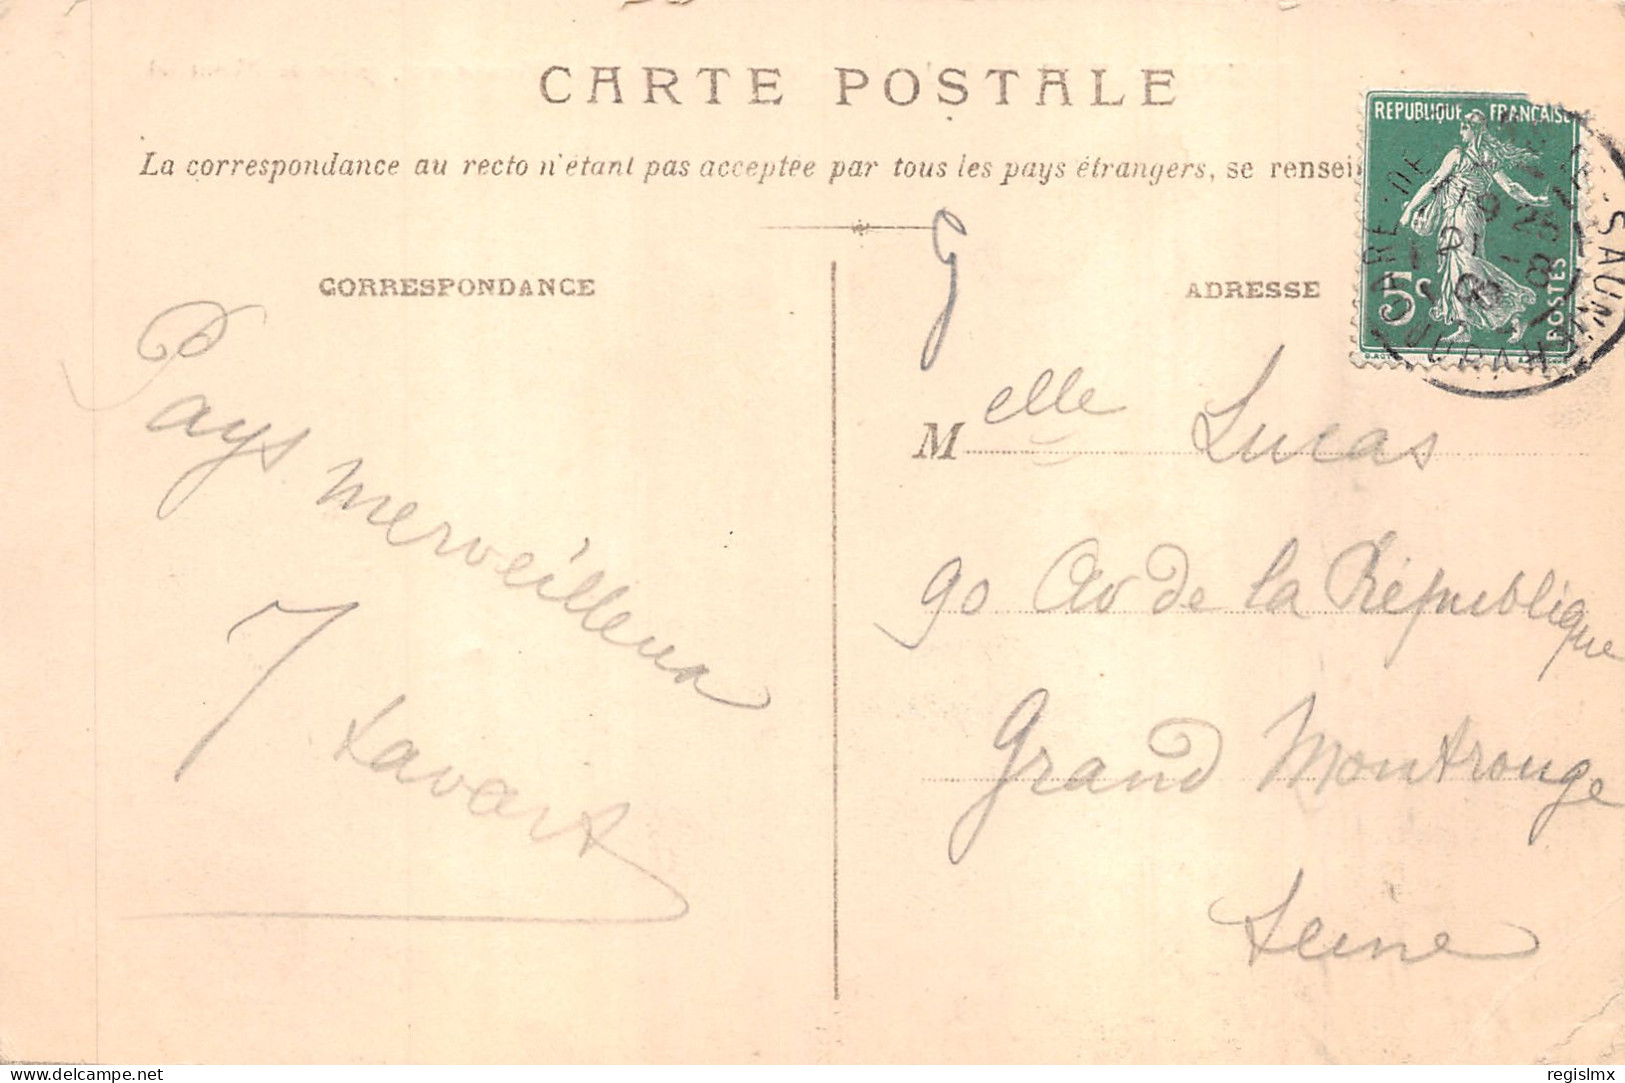 CARTE POSTALE
La correspondance au recto n'étant pas acceptée par tous les pays étrangers, se rensei
REPUBLIQUE FRANÇAISE
5c
POSTES
GARE-DE LONS-LE-SAUNIER
JURA
CORRESPONDANCE
Pays merveilleux
J Lavart
ADRESSE
Melle Lucas
90 Av de la République
Grand Montrouge
Seine
delcampe.net
regislmx